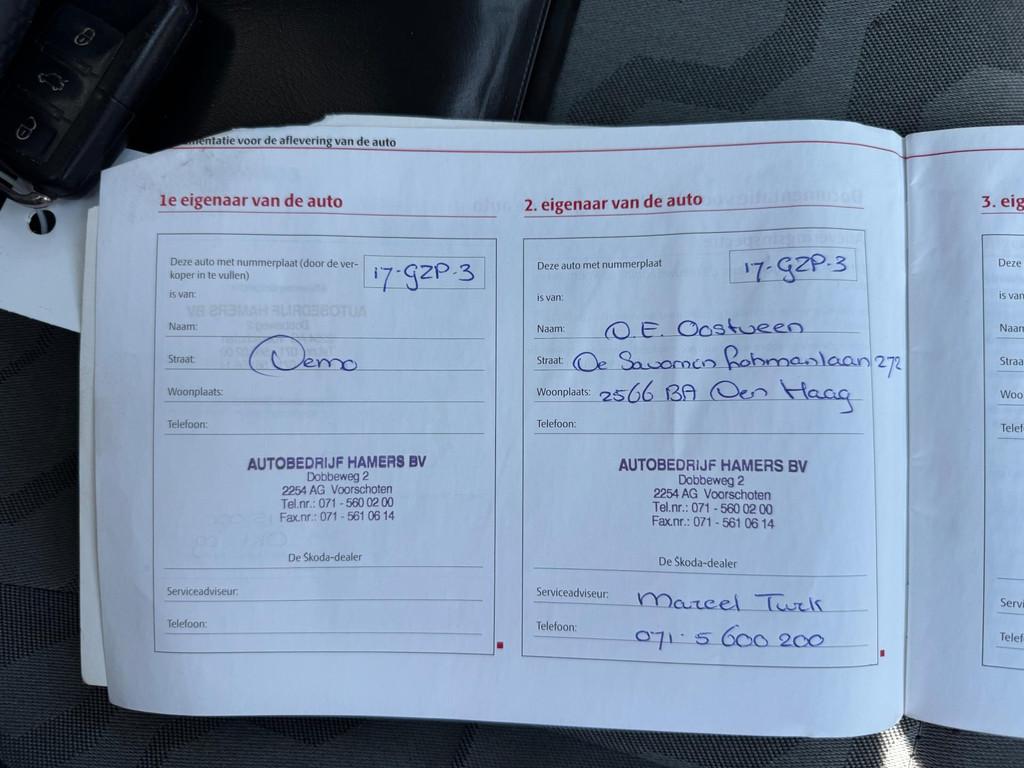 mentatie voor de aflevering van de auto
1e eigenaar van de auto
Deze auto met nummerplaat (door de ver-
koper in te vullen)
17-GZP-3
is van:
Naam:
Straat: Demo
Woonplaats:
Telefoon:
AUTOBEDRIJF HAMERS BV
Dobbeweg 2
2254 AG Voorschoten
Tel.nr.: 071 - 560 02 00
Fax.nr.: 071 - 561 06 14
De Škoda-dealer
Serviceadviseur:
Telefoon:
2. eigenaar van de auto
Deze auto met nummerplaat 17-GZP-3
is van:
Naam: D.E. Oostveen
Straat: De Savornin Lohmanlaan 272
Woonplaats: 2566 BA Den Haag
Telefoon:
AUTOBEDRIJF HAMERS BV
Dobbeweg 2
2254 AG Voorschoten
Tel.nr.: 071 - 560 02 00
Fax.nr.: 071 - 561 06 14
De Škoda-dealer
Serviceadviseur: Marcel Turk
Telefoon: 071-5 600 200
3. eig
Deze
is van
Naam
Straa
Woo
Telef
Servi
Telef